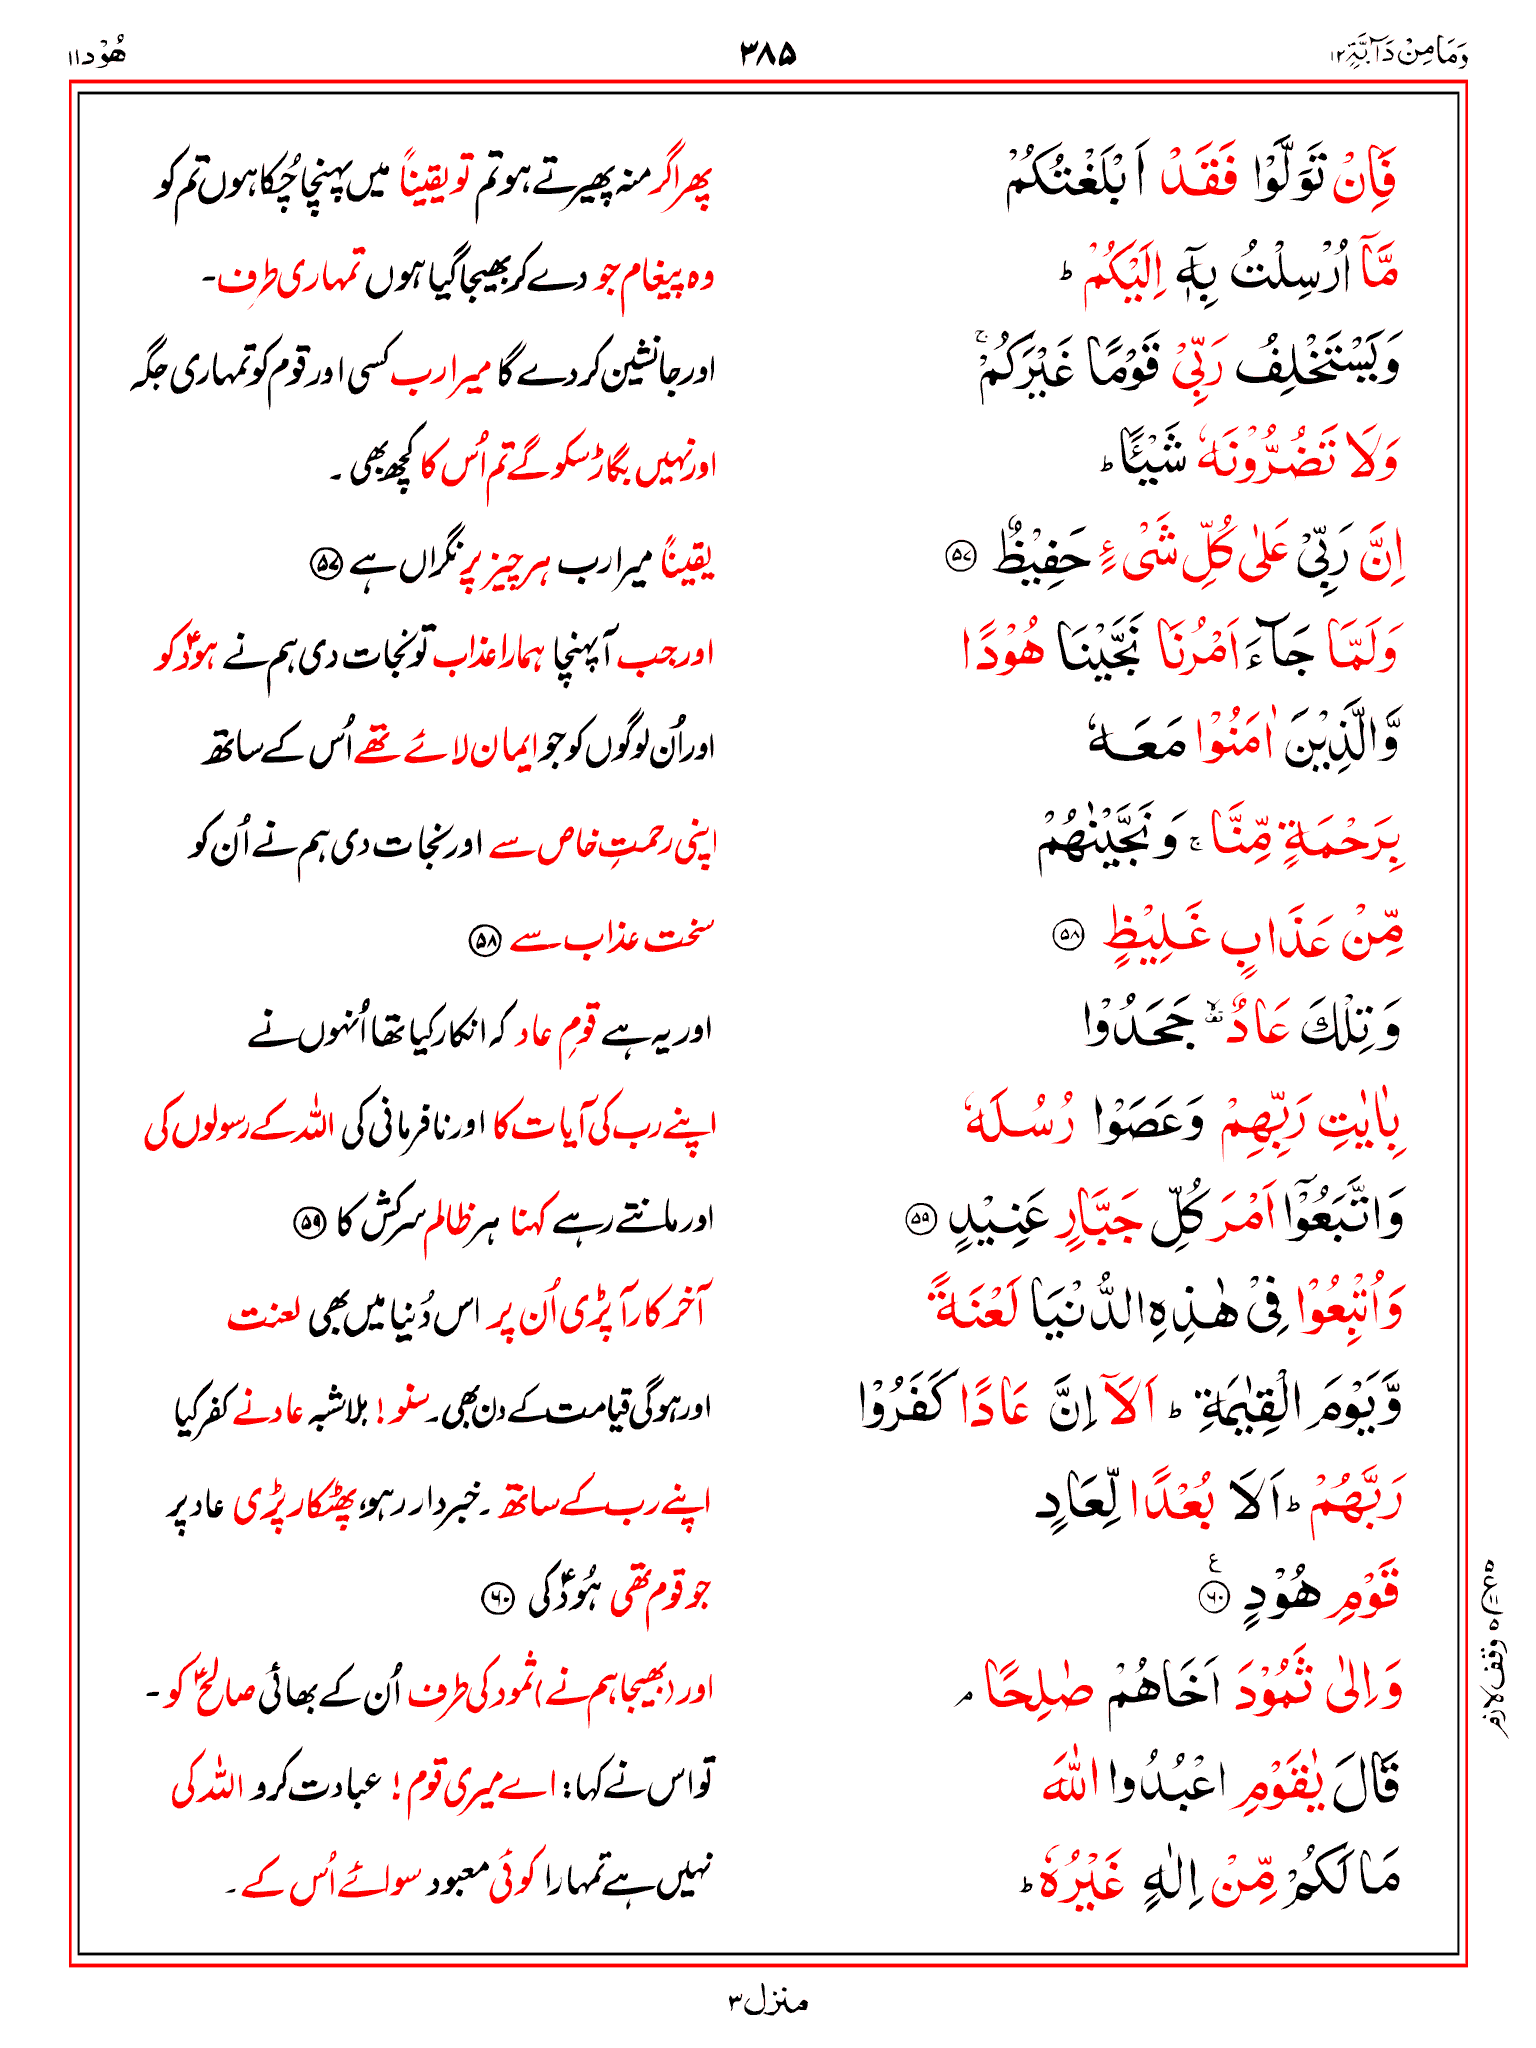 وَمَا مِنْ دَآبَّةٍ ۱۲ ۳۸۵ هُوْد ۱۱
فَاِنْ تَوَلَّوْا فَقَدْ اَبْلَغْتُكُمْ پھر اگر منہ پھیرتے ہو تم تو یقیناً میں پہنچا چُکا ہوں تم کو
مَّآ اُرْسِلْتُ بِهٖٓ اِلَيْكُمْ ؕ وہ پیغام جو دے کر بھیجا گیا ہوں تمہاری طرف۔
وَيَسْتَخْلِفُ رَبِّيْ قَوْمًا غَيْرَكُمْ ۚ اور جانشین کر دے گا میرا رب کسی اور قوم کو تمہاری جگہ
وَلَا تَضُرُّوْنَهٗ شَيْـًٔا ؕ اور نہیں بگاڑ سکو گے تم اُس کا کچھ بھی ۔
اِنَّ رَبِّيْ عَلٰى كُلِّ شَيْءٍ حَفِيْظٌ ۵۷ یقیناً میرا رب ہر چیز پر نگراں ہے ۵۷
وَلَمَّا جَآءَ اَمْرُنَا نَجَّيْنَا هُوْدًا اور جب آ پہنچا ہمارا عذاب تو نجات دی ہم نے ہودؑ کو
وَّالَّذِيْنَ اٰمَنُوْا مَعَهٗ اور اُن لوگوں کو جو ایمان لائے تھے اُس کے ساتھ
بِرَحْمَةٍ مِّنَّا ۚ وَنَجَّيْنٰهُمْ اپنی رحمتِ خاص سے اور نجات دی ہم نے اُن کو
مِّنْ عَذَابٍ غَلِيْظٍ ۵۸ سخت عذاب سے ۵۸
وَتِلْكَ عَادٌ ۙ جَحَدُوْا اور یہ ہے قومِ عاد کہ انکار کیا تھا اُنہوں نے
بِاٰيٰتِ رَبِّهِمْ وَعَصَوْا رُسُلَهٗ اپنے رب کی آیات کا اور نافرمانی کی اللہ کے رسولوں کی
وَاتَّبَعُوْٓا اَمْرَ كُلِّ جَبَّارٍ عَنِيْدٍ ۵۹ اور مانتے رہے کہنا ہر ظالم سرکش کا ۵۹
وَاُتْبِعُوْا فِيْ هٰذِهِ الدُّنْيَا لَعْنَةً آخر کار آ پڑی اُن پر اس دُنیا میں بھی لعنت
وَّيَوْمَ الْقِيٰمَةِ ؕ اَلَآ اِنَّ عَادًا كَفَرُوْا اور ہوگی قیامت کے دن بھی۔ سنو! بلاشبہ عاد نے کفر کیا
رَبَّهُمْ ؕ اَلَا بُعْدًا لِّعَادٍ اپنے رب کے ساتھ ۔ خبردار رہو، پھٹکار پڑی عاد پر
قَوْمِ هُوْدٍ ۶۰ ع جو قوم تھی ہُودؑ کی ۶۰
وَاِلٰى ثَمُوْدَ اَخَاهُمْ صٰلِحًا ۘ اور (بھیجا ہم نے) ثمود کی طرف اُن کے بھائی صالحؑ کو ۔
قَالَ يٰقَوْمِ اعْبُدُوا اللّٰهَ تو اس نے کہا: اے میری قوم! عبادت کرو اللہ کی
مَا لَكُمْ مِّنْ اِلٰهٍ غَيْرُهٗ ؕ نہیں ہے تمہارا کوئی معبود سوائے اُس کے ۔
وقف لازم
منزل ۳